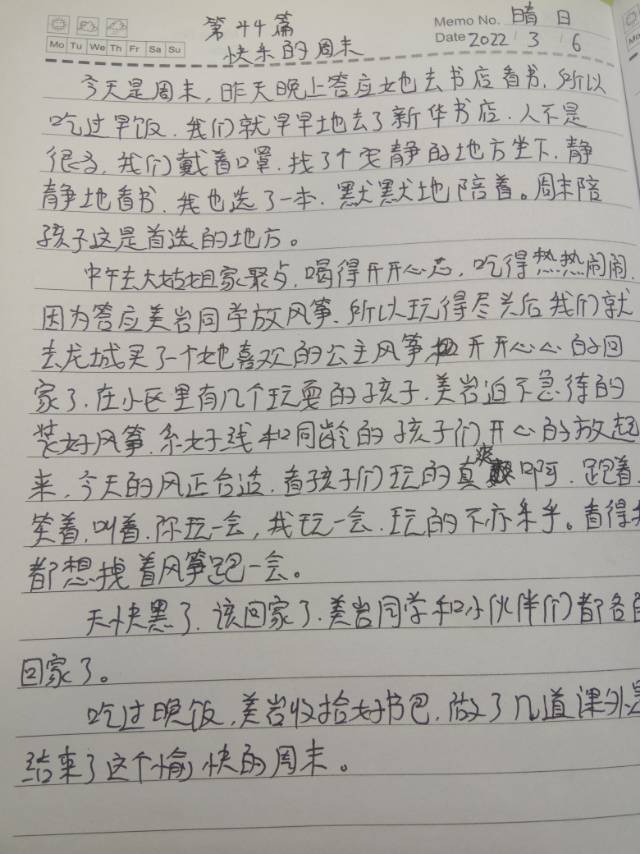 第44篇
快乐的周末
Memo No. 晴 日
Mo Tu We Th Fr Sa Su
Date 2022 / 3 / 6
今天是周末，昨天晚上答应她去书店看书，所以
吃过早饭，我们就早早地去了新华书店，人不是
很多，我们戴着口罩，找了个安静的地方坐下，静
静地看书，我也选了一本，默默地陪着。周末陪
孩子这是首选的地方。
中午去大姑姐家聚点，喝得开开心心，吃得热热闹闹，
因为答应美岩同学放风筝，所以玩得尽兴后我们就
去龙城买了一个她喜欢的公主风筝 开开心心的回
家了，在小区里有几个玩耍的孩子，美岩迫不急待的
装好风筝，系好线和同龄的孩子们开心的放起
来，今天的风正合适，看孩子们玩的真爽啊，跑着，
笑着，叫着，你玩一会，我玩一会，玩的不亦乐乎。看得我
都想拽着风筝跑一会。
天快黑了，该回家了，美岩同学和小伙伴们都各自
回家了。
吃过晚饭，美岩收拾好书包，做了几道课外
结束了这个愉快的周末。